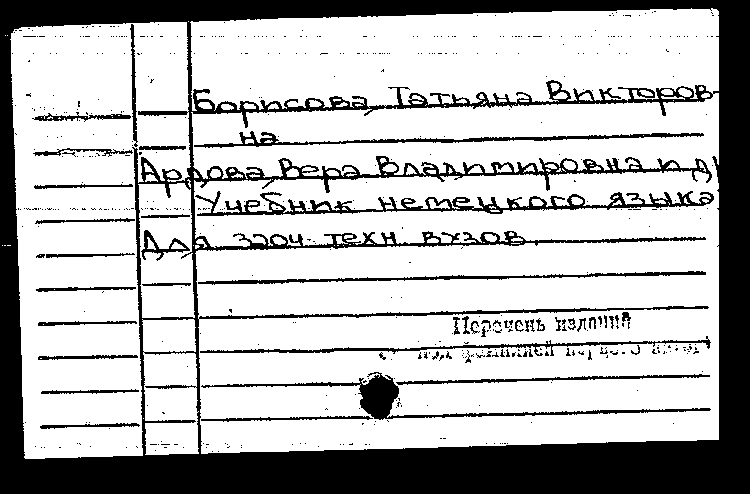 Борисова, Татьяна Викторов-
на
Ардова, Вера Владимировна и д
Учебник немецкого языка
Для заоч. техн. вузов.
Перечень изданий
под фамилией первого автор